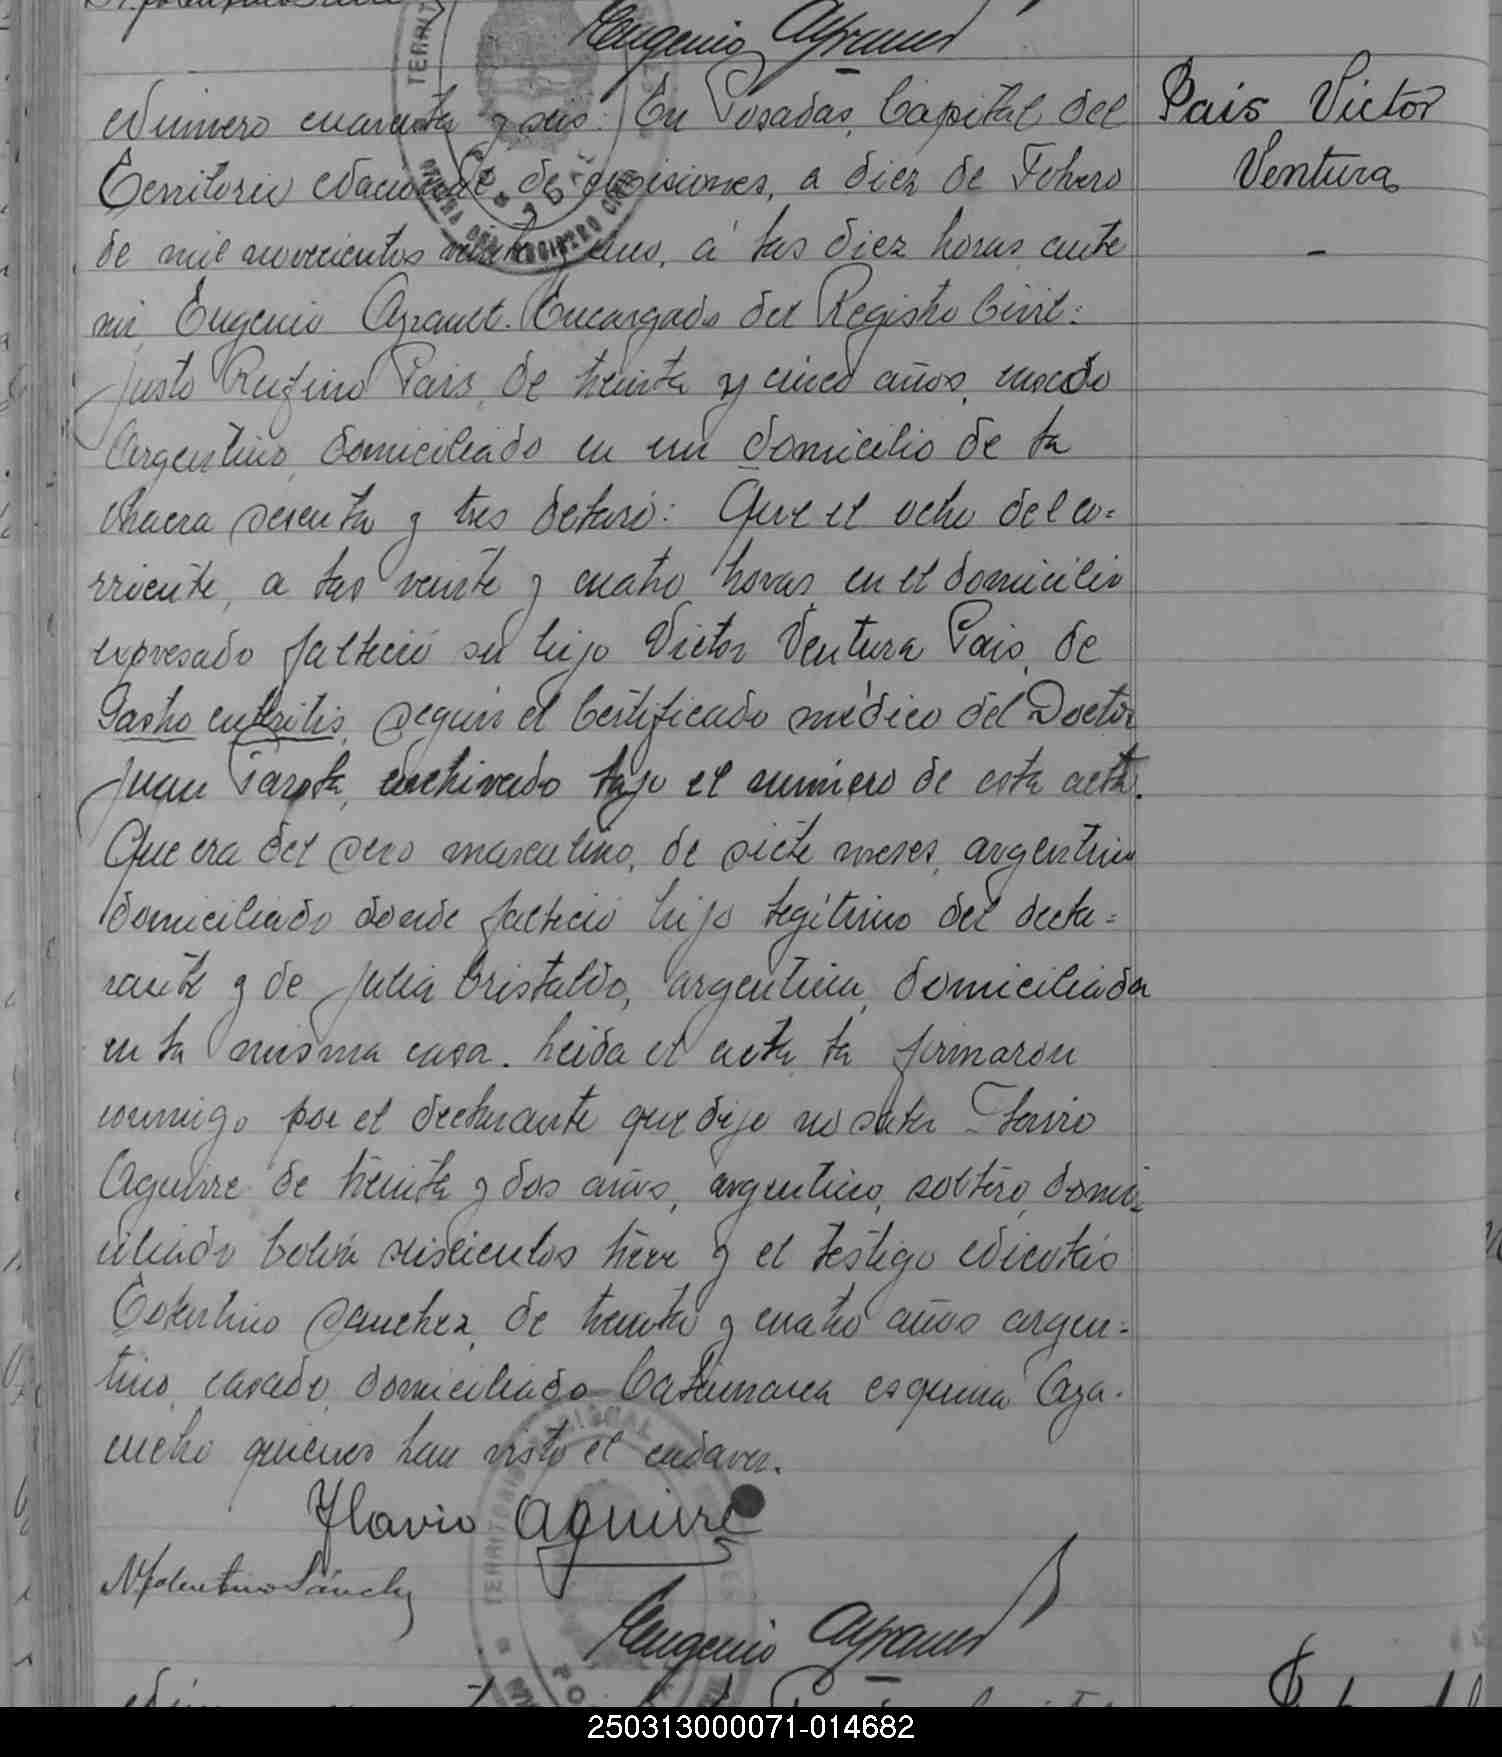 Eugenio Ayrault
Número cuarenta y seis: En Posadas, Capital del
Pais Victor
Territorio Nacional de Misiones, a diez de Febrero
Ventura
de mil novecientos veinte y uno, á las diez horas, ante
mi, Eugenio Ayrault. Encargado del Registro Civil:
Justo Rufino Pais, de treinta y cinco años, casado
Argentino, domiciliado en un domicilio de la
chacra sesenta y tres declaró: Que el ocho del co=
rriente, a las veinte y cuatro horas, en el domicilio
expresado falleció su hijo Victor Ventura Pais, de
Gastro enteritis, según el Certificado médico del Doctor
Juan archivado bajo el número de esta acta.
Que era del sexo masculino, de siete meses, argentino
domiciliado donde falleció hijo legítimo del decla=
rante y de Julia Cristaldo, argentina, domiciliada
en la misma casa. Leida el acta la firmaron
conmigo por el declarante que dijo no saber Flavio
Aguirre de treinta y dos años, argentino, soltero, domi=
ciliado Colón seiscientos trece y el testigo Nicolás
Tolentino Sanchez, de treinta y cuatro años argen=
tino, casado, domiciliado Catamarca esquina Aya=
cucho quienes han visto el cadaver.
Flavio Aguirre
N. Tolentino Sánchez
Eugenio Ayrault
250313000071-014682